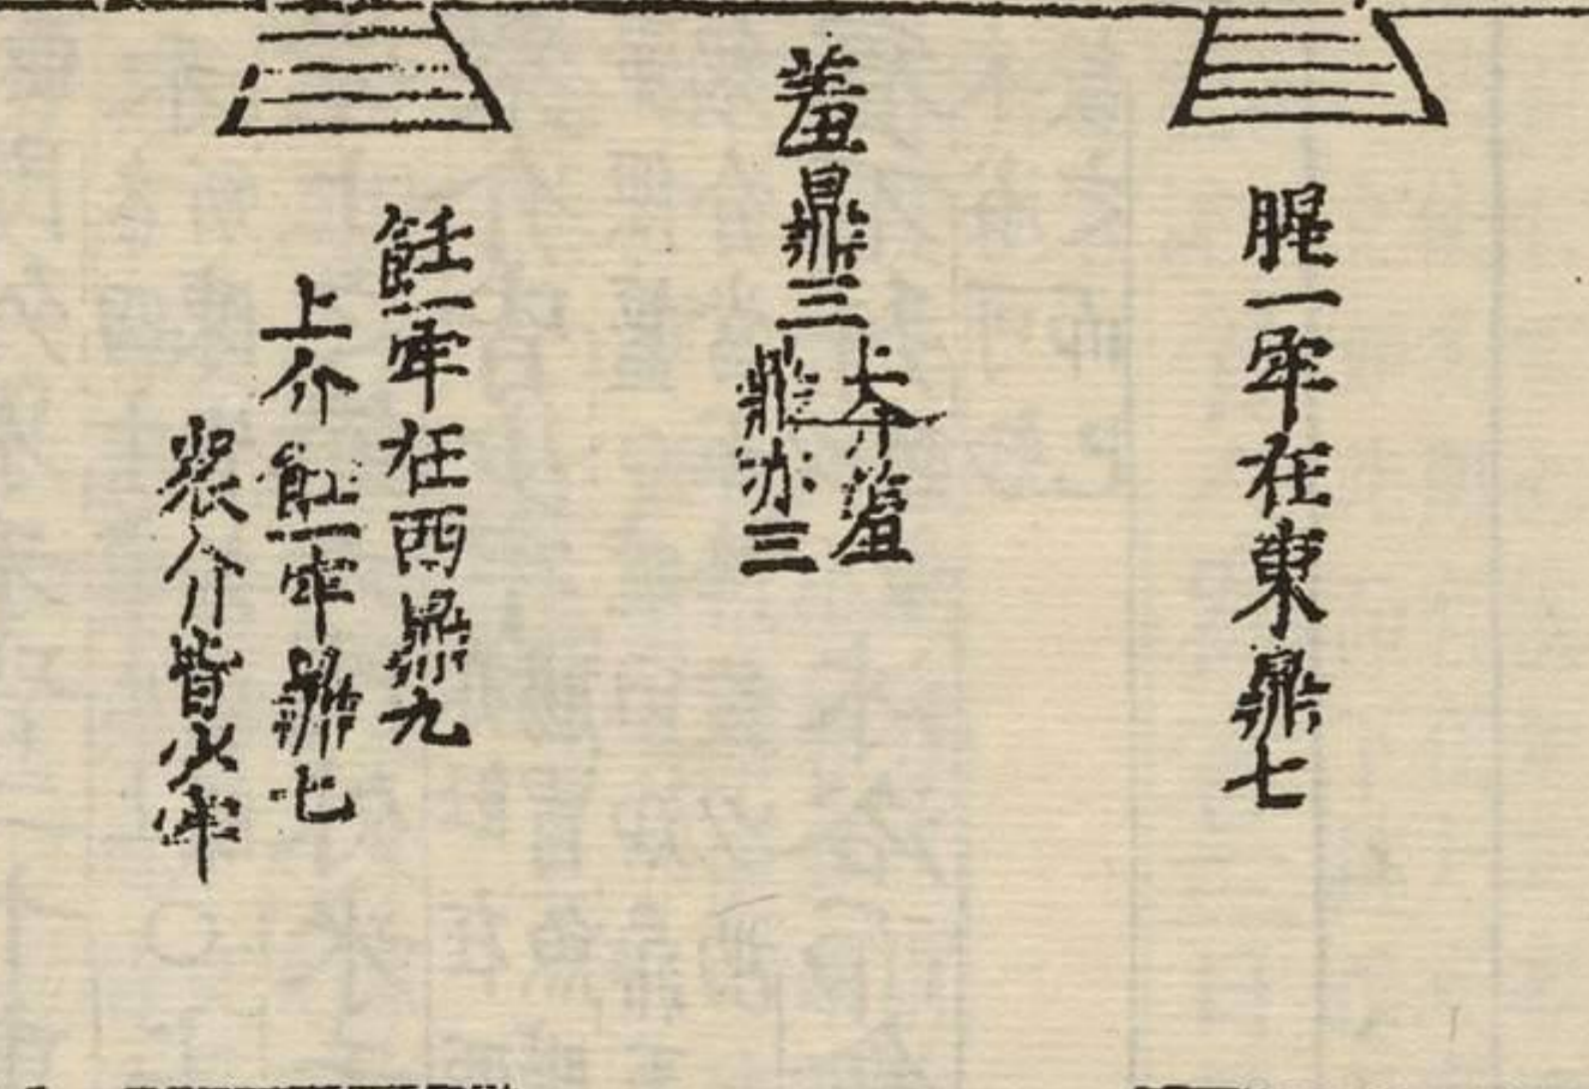 腥一牢在東鼎七
羞鼎三
上介羞
鼎亦三
飪一牢在西鼎九
上介飪一牢鼎七
衆介皆少牢